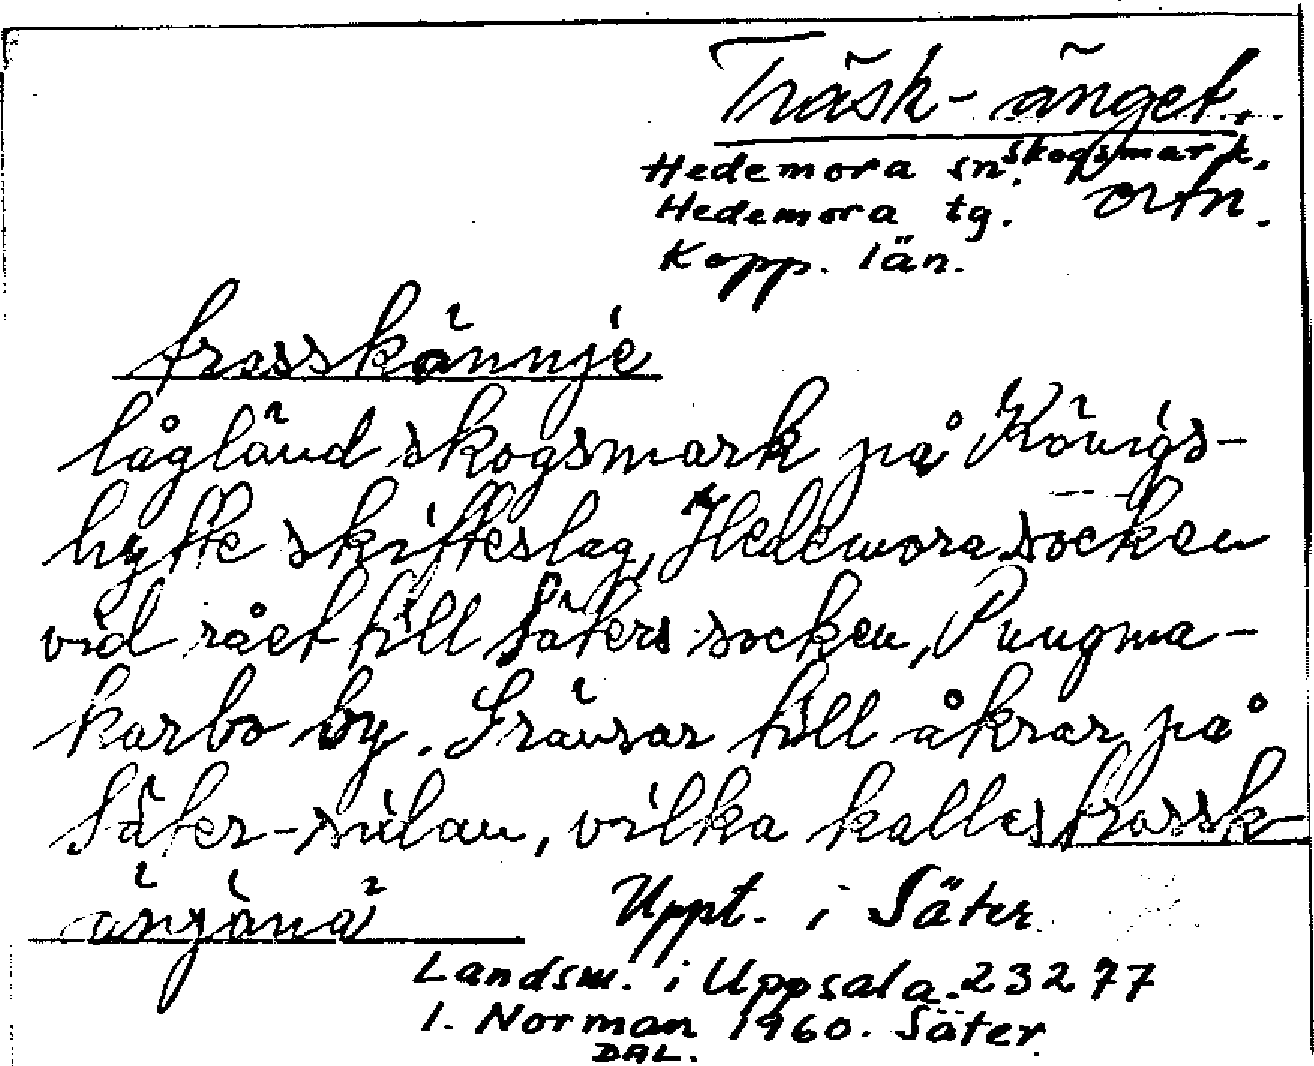 Träsk-änget.
skogsmark,
Hedemora sn. ortn.
Hedemora tg.
Kopp. län.
frasskännje
lågländ skogsmark på Königs-
hytte skifteslag, Hedemora socken
vid rået till Säters socken, Pungma-
karbo by. Gränsar till åkrar på
Säter-sidan, vilka kalles frassk-
änjàna
Uppt. i Säter
Landsm. i Uppsala. 23277
I. Norman 1960. Säter.
DAL.